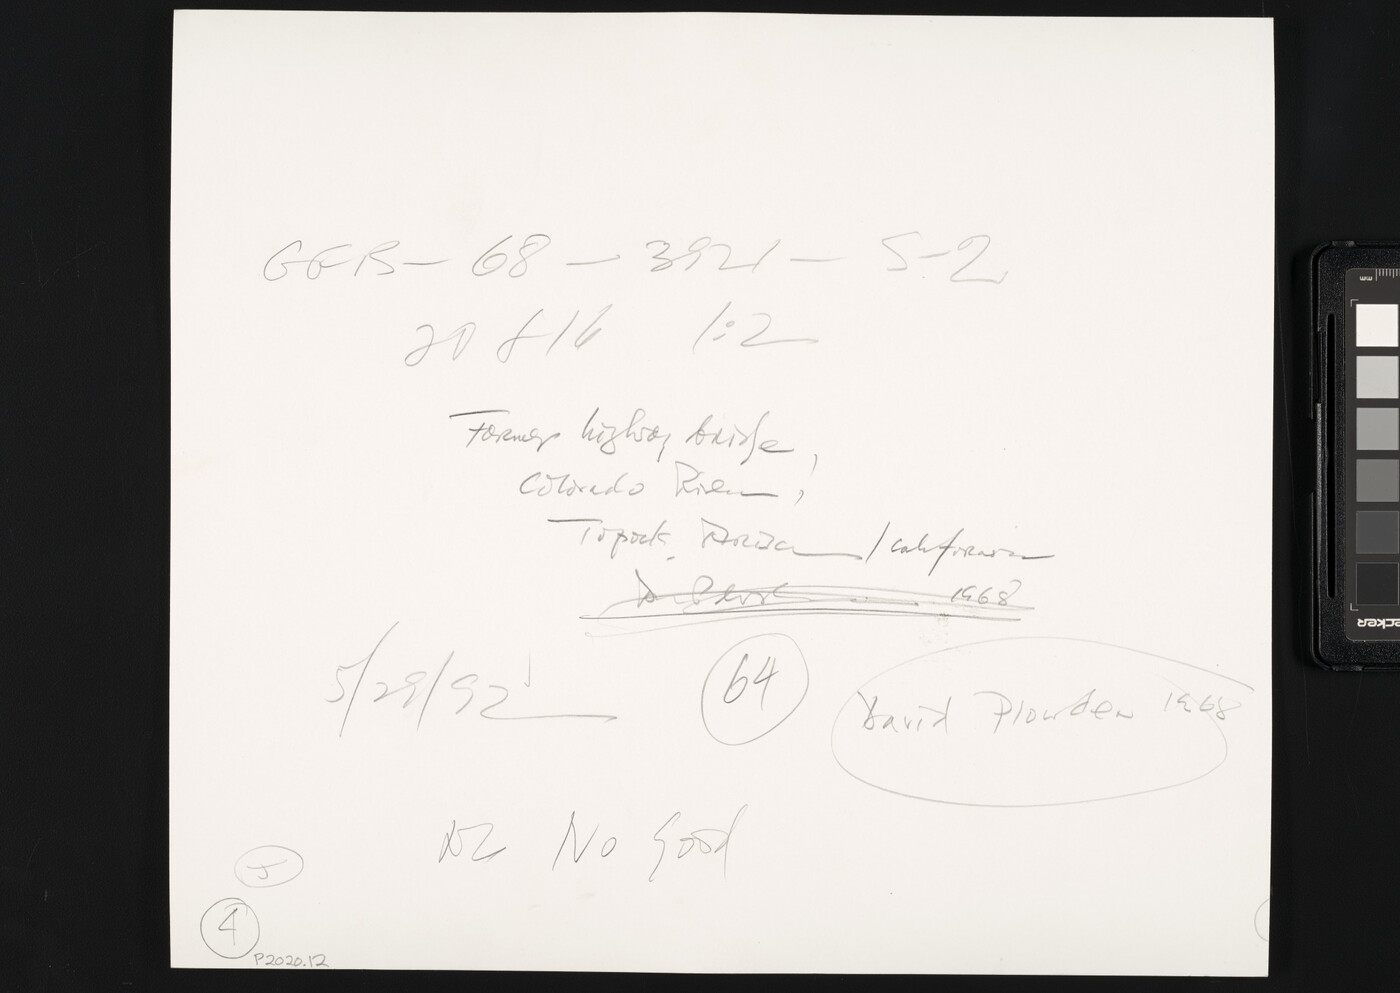 GEB - 68 - 3921 - S-2
20 x 16 1:2
Former highway bridge,
Colorado River,
Topock, Arizona / California
1968
5/29/92
64
David Plowden 1968
No Good
5
4
P2020.12
mm